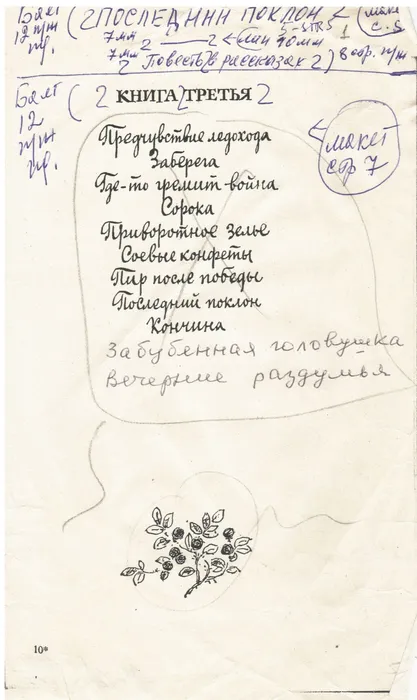 Балт 12 п/ж пр. (2 ПОСЛЕДНИЙ ПОКЛОН < (макет с. 5
7мм
7мм 2 — 2 < лин 40мм
2 Повесть 2 в рассказах 2)
Балт 12 п/ж пр. (2 КНИГА 2 ТРЕТЬЯ 2
< макет стр 7
Предчувствие ледохода
Заберега
Где-то гремит война
Сорока
Приворотное зелье
Соевые конфеты
Пир после победы
Последний поклон
Кончина
Забубенная головушка
Вечерние раздумья
10*